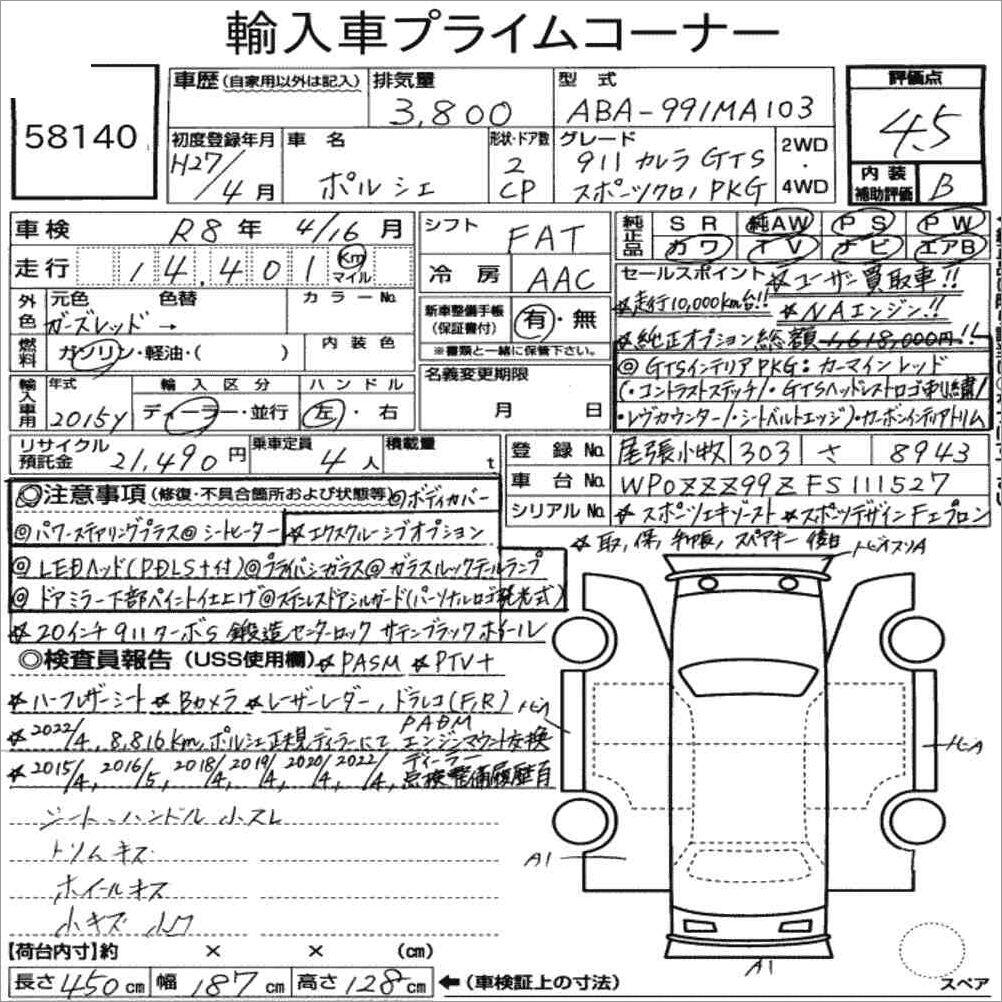 輸入車プライムコーナー
58140
車歴(自家用以外は記入) 排気量 型式 評価点
3,800 ABA-991MA103 4.5
初度登録年月 車名 形状・ドア数 グレード 2WD・4WD
H27/4月 ポルシェ 2 CP 911 カレラ GTS スポーツクロノPKG
内装補助評価 B
車検 R8年 4/16月 シフト FAT
純正品 SR 純AW PS PW
カワ TV ナビ エアB
走行 14,401 Km マイル 冷房 AAC
セールスポイント ☆ユーザー買取車!!
☆走行10,000km台!! ☆NAエンジン!!
☆純正オプション総額 1,618,000円!!
外色 元色 色替 カラーNo.
カーズレッド→
新車整備手帳(保証書付) 有・無
※書類と一緒に保管下さい。
燃料 ガソリン・軽油・( ) 内装色
◎GTSインテリアPKG:カーマインレッド
(・コントラストステッチ/・GTSヘッドレストロゴ刺繍/
・レヴカウンター/・シートベルトエッジ)・カーボンインテリアトリム
輸入車用 年式 輸入区分 ハンドル
2015y ディーラー・並行 左・右
名義変更期限 月 日
リサイクル預託金 21,490円 乗車定員 4人 積載量 t
登録No. 尾張小牧 303 さ 8943
車台No. WP0ZZZ99ZFS111527
シリアルNo. ☆スポーツエキゾースト ☆スポーツデザインFエプロン
☆取,保,和取,スペアキー 後日
◎注意事項(修復・不具合箇所および状態等)◎ボディカバー
◎パワーステアリングプラス◎シートヒーター ☆エクスクルーシブオプション
◎LEDヘッド(PDLS+付)◎プライバシーガラス◎ガラスルックテールランプ
◎ドアミラー下部ペイント仕上げ◎ステンレスドアシルガード(パーソナルロゴ発光式)
☆20インチ911ターボS鍛造センターロック サテンブラックホイール
◎検査員報告(USS使用欄)☆PASM ☆PTV+
☆ハーフレザーシート ☆Bカメラ ☆レーザーレーダー,ドラレコ(F,R)
☆2022/4,8,816km,ポルシェ正規ディーラーにて PADM エンジンマウント交換
☆2015/4,2016/5,2018/4,2019/4,2020/4,2022/4,ディーラー点検整備履歴有
シート、ハンドル小スレ
トリムキズ
ホイールキズ
小キズ 小ワ
A1
A1
【荷台内寸】約 × × (cm)
長さ450cm 幅187cm 高さ128cm ←(車検証上の寸法)
スペア